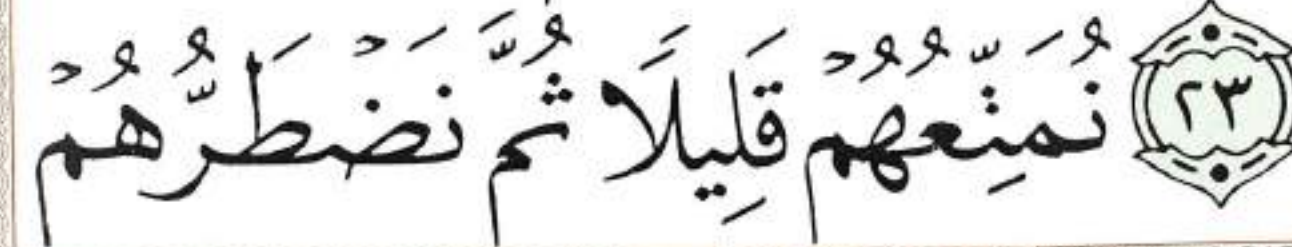 ٢٣ نُمَتِّعُهُمْ قَلِيلًا ثُمَّ نَضْطَرُّهُمْ